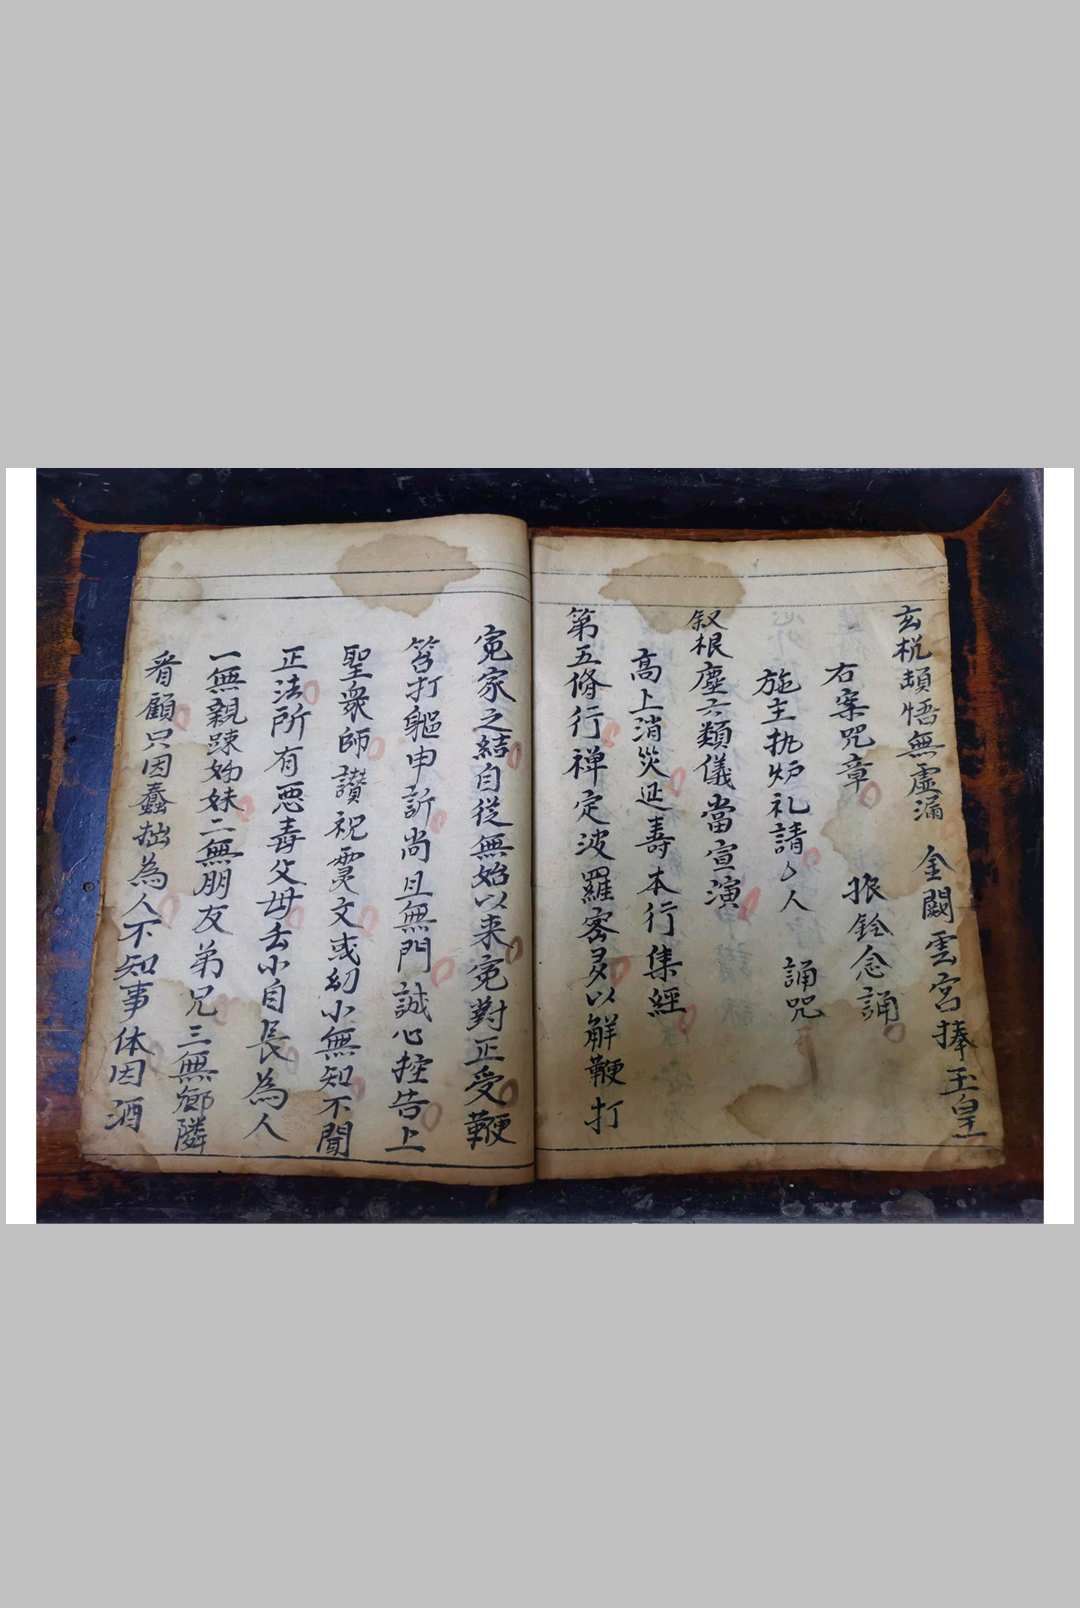 玄梲頓悟無虛漏　金闕雲宮捧玉皇
右案咒章　振鈴念誦
施主执炉礼請〻人　誦咒
叙根塵六類儀當宣演
高上消災延壽本行集經
第五脩行禅定波羅密多以解鞭打
寃家之結自従無始以来寃對正受鞭
笞打軀申訴尚且無門誠心控告上
聖衆師讃祝霊文或幼小無知不聞
正法所有恶毒父母去小自長為人
一無親踈姊妹二無朋友弟兄三無鄉隣
看顧只因蠢拙為人不知事体因酒